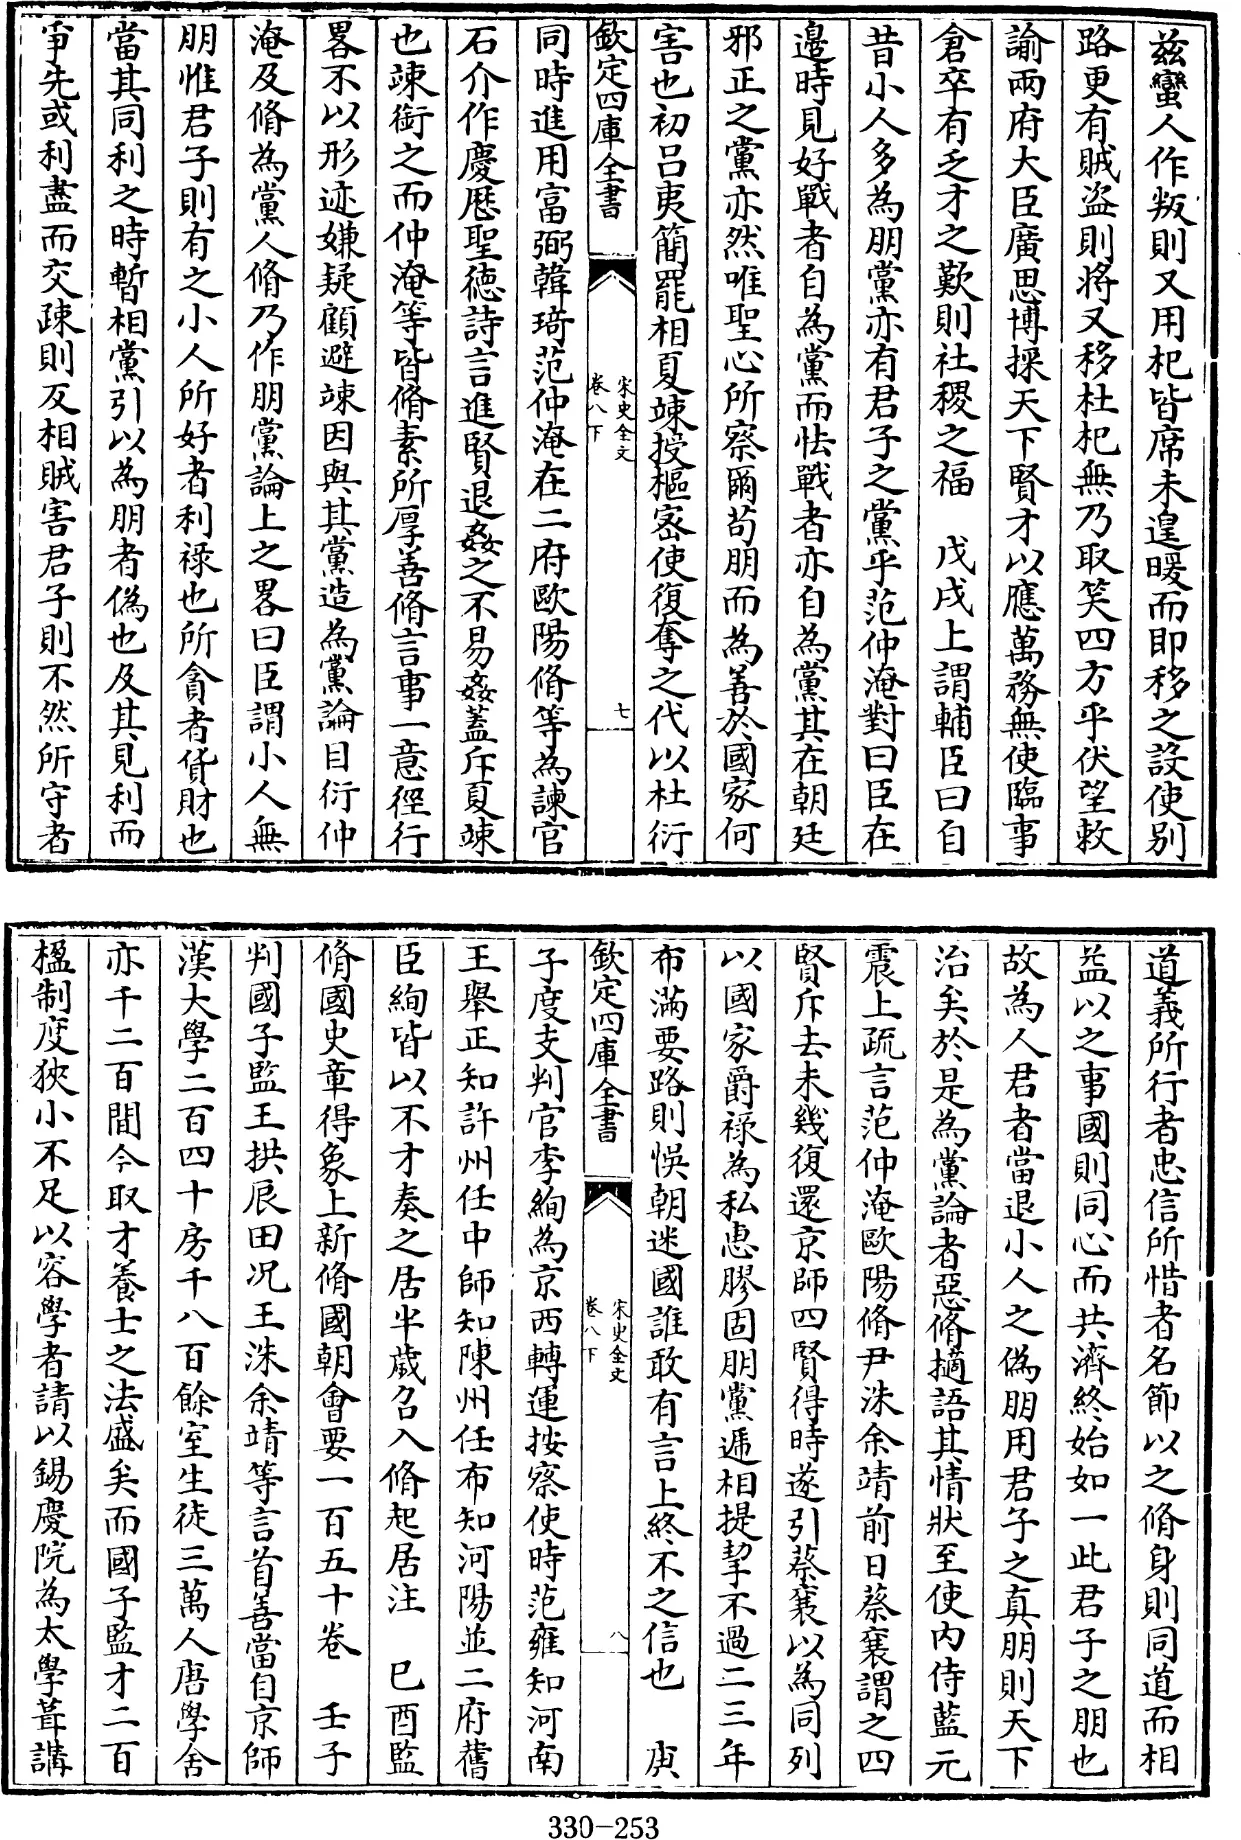 茲蠻人作叛則又用杞皆席未遑暖而即移之設使别
路更有賊盗則将又移杜杞無乃取笑四方乎伏望敕
諭兩府大臣廣思博採天下賢才以應萬務無使臨事
倉卒有乏才之歎則社稷之福　戊戌上謂輔臣曰自
昔小人多為朋黨亦有君子之黨乎范仲淹對曰臣在
邉時見好戰者自為黨而怯戰者亦自為黨其在朝廷
邪正之黨亦然唯聖心所察爾苟朋而為善於國家何
害也初吕夷簡罷相夏竦授樞宻使復奪之代以杜衍
欽定四庫全書
宋史全文
卷八下
七
同時進用富弼韓琦范仲淹在二府歐陽脩等為諫官
石介作慶厯聖德詩言進賢退姦之不易姦蓋斥夏竦
也竦銜之而仲淹等皆脩素所厚善脩言事一意徑行
畧不以形迹嫌疑顧避竦因與其黨造為黨論目衍仲
淹及脩為黨人脩乃作朋黨論上之畧曰臣謂小人無
朋惟君子則有之小人所好者利禄也所貪者貨財也
當其同利之時暫相黨引以為朋者偽也及其見利而
爭先或利盡而交疎則反相賊害君子則不然所守者
道義所行者忠信所惜者名節以之脩身則同道而相
益以之事國則同心而共濟終始如一此君子之朋也
故為人君者當退小人之偽朋用君子之真朋則天下
治矣於是為黨論者惡脩擿語其情狀至使内侍藍元
震上疏言范仲淹歐陽脩尹洙余靖前日蔡襄謂之四
賢斥去未幾復還京師四賢得時遂引蔡襄以為同列
以國家爵祿為私惠膠固朋黨遞相提挈不過二三年
布滿要路則悞朝迷國誰敢有言上終不之信也　庚
欽定四庫全書
宋史全文
卷八下
八
子度支判官李絢為京西轉運按察使時范雍知河南
王舉正知許州任中師知陳州任布知河陽並二府舊
臣絢皆以不才奏之居半歲召入脩起居注　己酉監
脩國史章得象上新脩國朝會要一百五十卷　壬子
判國子監王拱辰田况王洙余靖等言首善當自京師
漢大學二百四十房千八百餘室生徒三萬人唐學舍
亦千二百間今取才養士之法盛矣而國子監才二百
楹制度狹小不足以容學者請以錫慶院為太學葺講
330-253